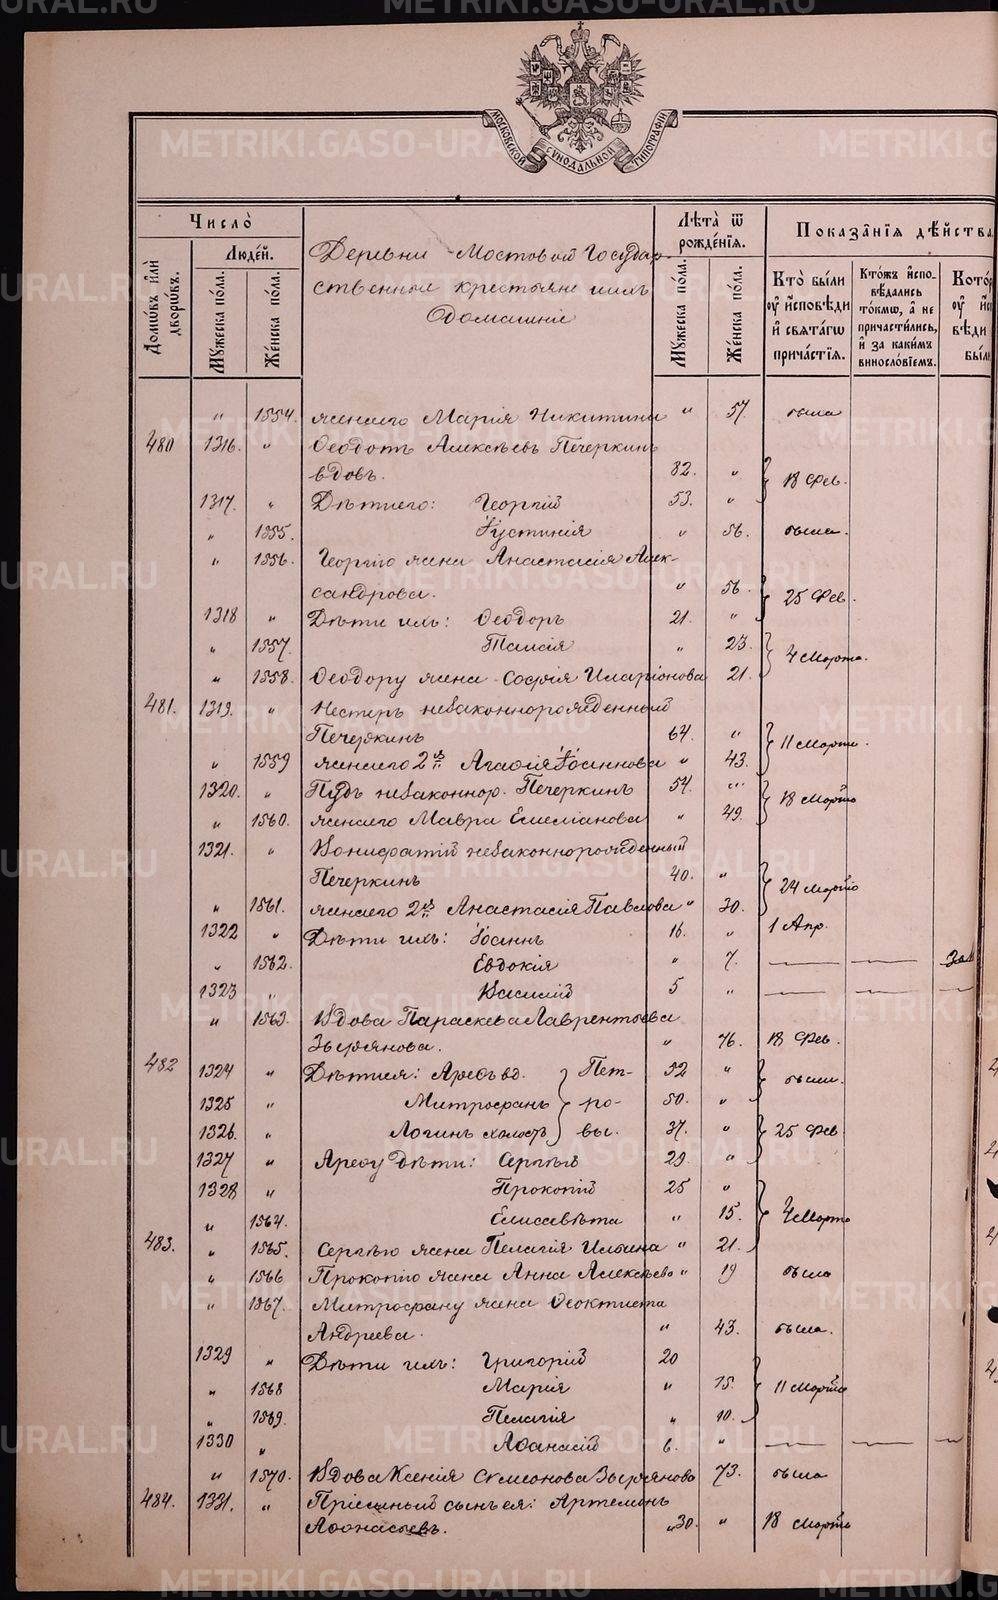 METRIKI.GASO-URAL.RU
МОСКОВСКОЙ СѴНОДАЛЬНОЙ ТИПОГРАФІИ
Число̀
Домѡ́въ и҆лѝ дворѡ́въ.
Люде́й.
Мꙋ́жеска по́ла.
Же́нска по́ла.
Деревни Мостовой Государ-
ственные крестьяне и ихъ
Домашніе
Лѣ́та ѿ рожде́нїѧ.
Мꙋ́жеска по́ла.
Же́нска по́ла.
Показа̑нїѧ дѣ́йства
Кто̀ бы́ли оу҆ и҆́сповѣди и҆ свѧта́гѡ прича́стїѧ.
Кто́жъ и҆спо-вѣ́дались то́кмѡ, а҆ не причасти́лись, и҆ за каки́мъ винословїемъ.
Кото́р
оу҆ и҆с
вѣди
бы́л
" 1554. жена его Марія Никитина " 57. была
480 1316. " Ѳеодотъ Алексѣевъ Печеркинъ
вдовъ. 82. " 18 Фев.
1317. " Дѣти его: Георгій 53. "
" 1555. Іустинія " 56. была.
" 1556. Георгію жена Анастасія Алек-
сандрова. " 56. 25 Фев.
1318 " Дѣти ихъ: Ѳеодоръ 21. "
" 1557. Таисія " 23. 4 Марта.
" 1558. Ѳеодору жена Софія Иларіонова 21.
481. 1319. " Нестеръ незаконнорожденный
Печеркинъ 64. " 11 Марта.
" 1559 жена его 2я Агафія Іоаннова " 43.
1320. " Пудъ незаконнор. Печеркинъ 54. " 18 Марта
" 1560. жена его Мавра Емеліанова " 49.
1321. " Вонифатій незаконнорожденный
Печеркинъ 40. " 24 Марта
" 1561. жена его 2я Анастасія Павлова " 30.
1322 " Дѣти ихъ: Іоаннъ 16. " 1 Апр.
" 1562. Евдокія " 7. — —
1323 " Василій 5 " — — —
" 1563. Вдова Параскева Лаврентьева
Зырянова. " 76. 18 Фев.
482 1324 " Дѣти ея: Арефъ вд. Пет- 52 " были.
1325 " Митрофанъ ро- 50. "
1326. " Логинъ холостъ вы. 37. " 25 Фев
1327 " Арефу дѣти: Сергѣй 29. "
1328 " Прокопій 25 "
" 1564. Елисавѣта " 15. 4 Марта
483. " 1565. Сергѣю жена Пелагія Ильина " 21.
" 1566 Прокопію жена Анна Алексѣева " 19 была
" 1567. Митрофану жена Ѳеоктиста
Андреева. " 43. была.
1329 " Дѣти ихъ: Григорій 20
" 1568 Марія " 15. 11 Марта
" 1569. Пелагія " 10.
1330 " Аѳанасій 6. " — — —
" 1570. Вдова Ксенія Симеонова Зырянова 73. была
484. 1331. " Пріемный сынъ ея: Артемонъ
Аѳанасьевъ. 30. " 18 Марта